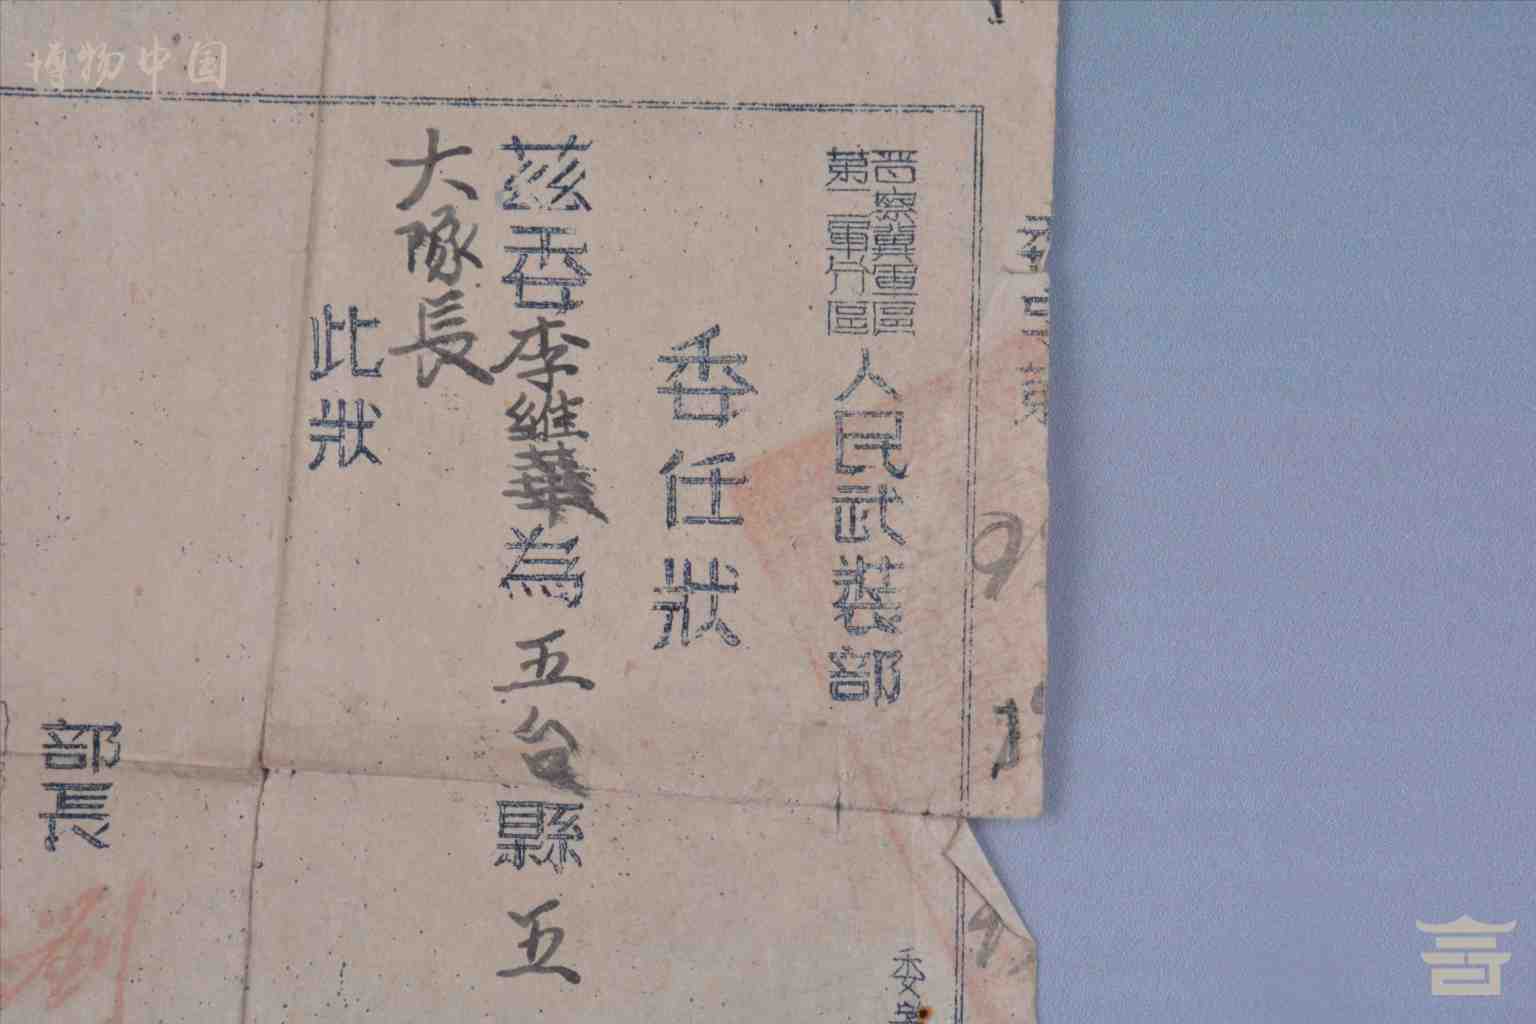 博物中国
晋察冀軍區
第二軍分區
人民武裝部
委任狀
茲委李維華為五台縣五
大隊長
此狀
部長
劉